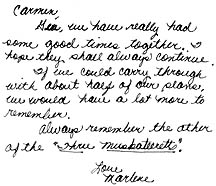 Carmin,
Gee, we have really had
some good times together. I
hope they shall always continue.
If we could carry through
with about half of our plans,
we would have a lot more to
remember.
Always remember the other
of the "Three Muskateerette"
Love
Marlene